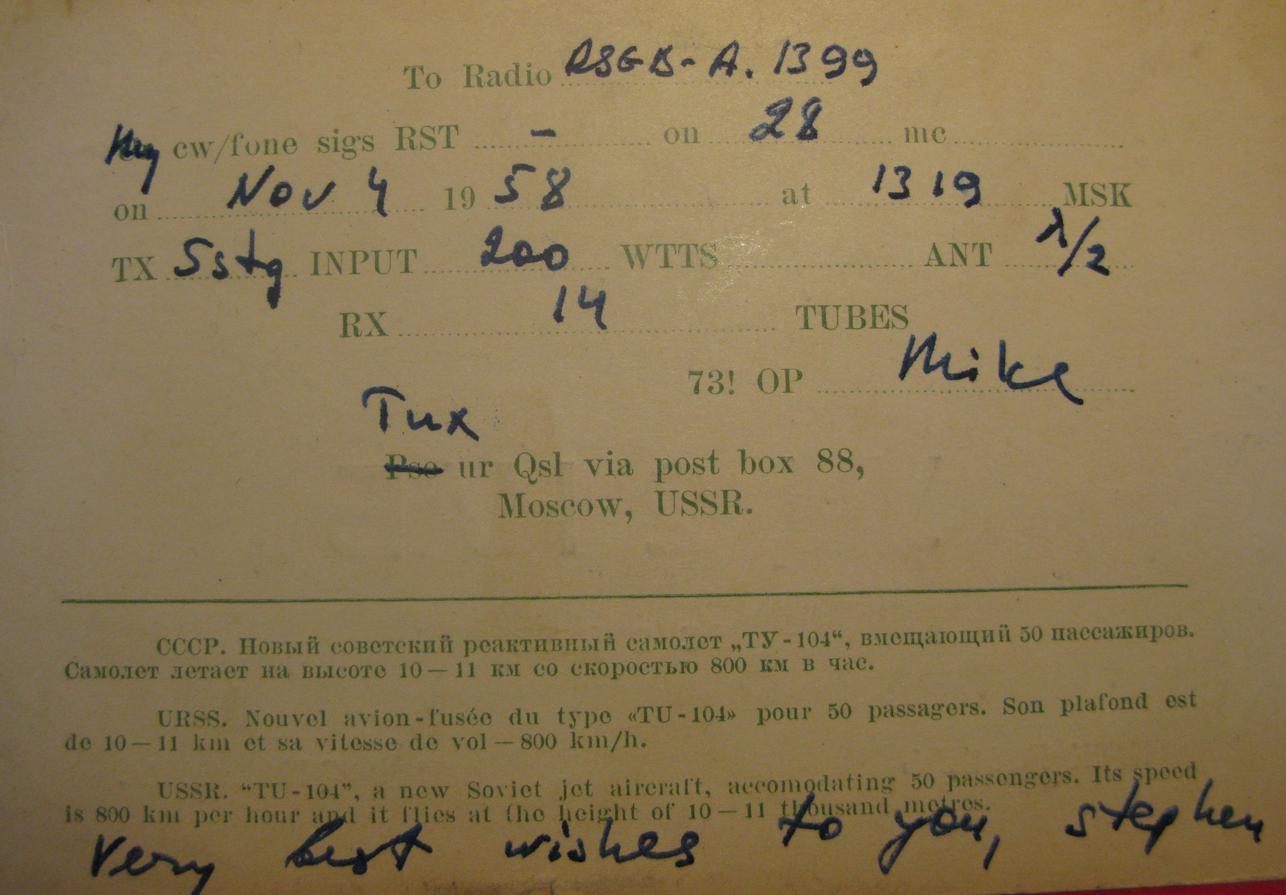 To Radio RSGB-A. 1399
My cw/fone sigs RST - on 28 mc
on Nov 4 19 58 at 1319 MSK
TX 5stg INPUT 200 WTTS ANT λ/2
RX 14 TUBES
73! OP Mike
Tnx
Pse ur Qsl via post box 88,
Moscow, USSR.
СССР. Новый советский реактивный самолет „ТУ-104“, вмещающий 50 пассажиров.
Самолет летает на высоте 10—11 км со скоростью 800 км в час.
URSS. Nouvel avion-fusée du type «TU-104» pour 50 passagers. Son plafond est
de 10—11 km et sa vitesse de vol—800 km/h.
USSR. “TU-104”, a new Soviet jet aircraft, accomodating 50 passengers. Its speed
is 800 km per hour and it flies at the height of 10—11 thousand metres.
Very best wishes to you, stephen